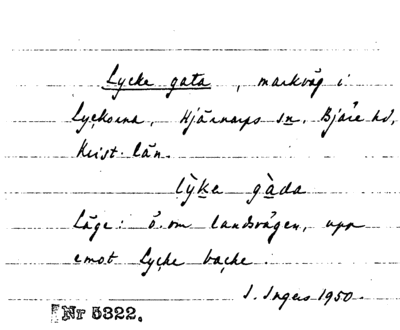 Lycke gata, markväg i
Lyckorna, Hjärnarps sn. Bjäre hd,
Krist. län.
lỳke gàda
Läge: ö. om landsvägen, upp
emot Lycke backe.
I. Ingers 1950.
Nr 5322.